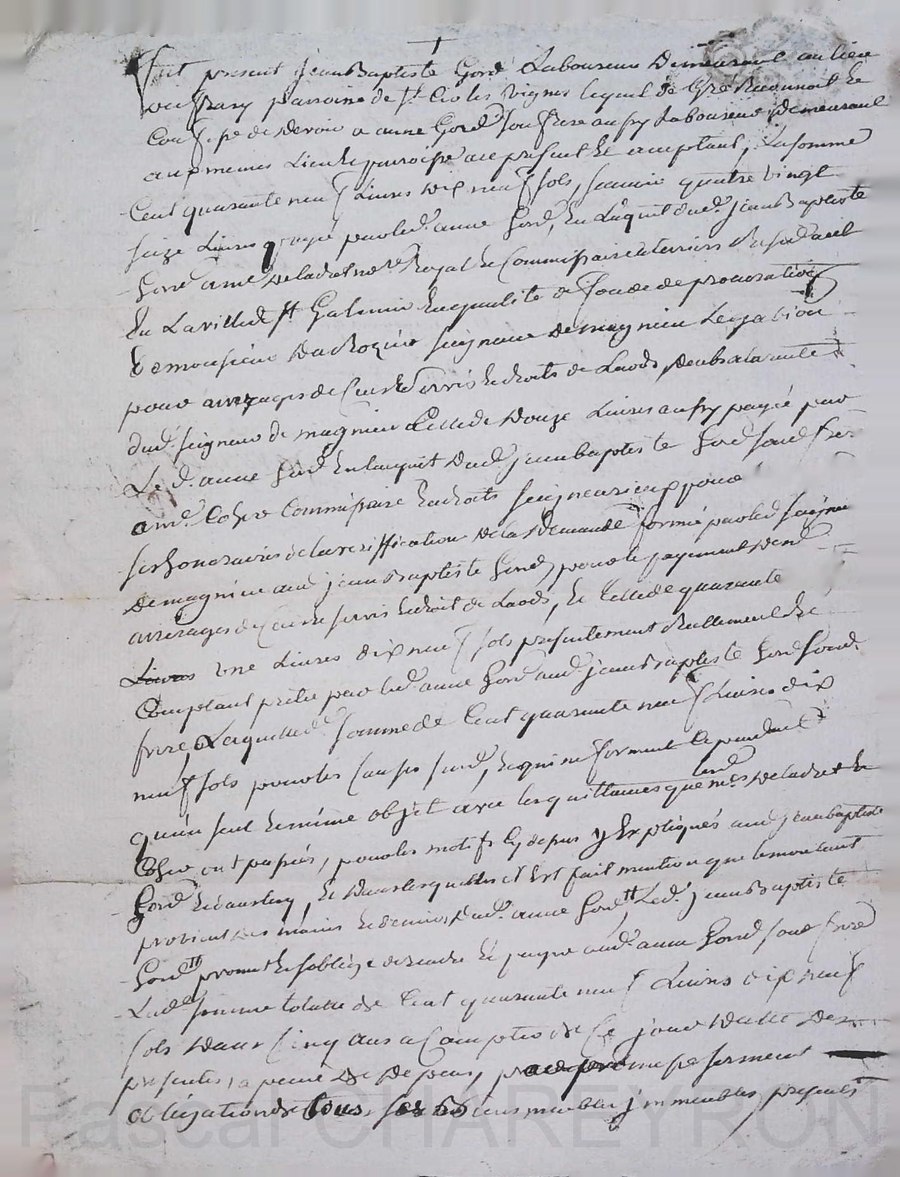 fut present jean Baptiste Gord Laboureur Demeurant au lieu
parroisse de St. les vignes lequel de gré Reconnoit et
Confesse devoir a anne Gord son frere aussy Laboureur demeurant
au meme Lieu et parroisse ace present et acceptant, La somme
Cent quarante neuf Livres dix neuf sols, scavoir quatre vingt
seize Livres payé par led. anne Gord, En L'aquit dud. jean Baptiste
Gord a me Delachet nre. Royal et Commissaire a terriers
En La ville de st Galmier En qualité de fondé de procuration
De monsieur seigneur de magnieu
pour arrerages de Cens et servis et droits de Laods
dud. seigneur de magnieu Celle de Douze Livres aussy payée par
Le d. anne Gord En lacquit dud. jean baptiste Gord son d. frere
a me. Cohre Commissaire En droits seigneuriaux pour
ses honoraires de la veriffication de la Demande formé par led. seigneur
De magnieu aud. jean Baptiste Gord, pour le payement
arrerages de Cens et servis et droit de Laods, Et Celle de quarante
Livres une Livres dix neuf sols presentement Reellement
Comptant prettée par led. anne Gord aud. jean Baptiste Gord son d.
frere, Laquelle d. somme de Cent quarante neuf Livres dix
neuf sols pour les Causes susd., et qui ne forment Cependant
qu'un seul et même objet avec les quittances que led. mes Delachet et
Cohre ont passés, pour les motifs Cy depus Expliqués aud. jean baptiste
Gord et dans lesquelles il Est fait mention que le montant
provient des mains et deniers dud. anne Gord, Led. jean Baptiste
Gord promet et s'oblige de rendre Et payer aud. anne Gord son d. frere
Lad. somme totalle de Cent quarante neuf Livres dix neuf
sols dans Cinq ans a Compter de Ce jour datte Des
presentes, a peine de Depens, promesse serment
obligation de tous ses biens meubles immeubles presents
Pascal CHAREYRON